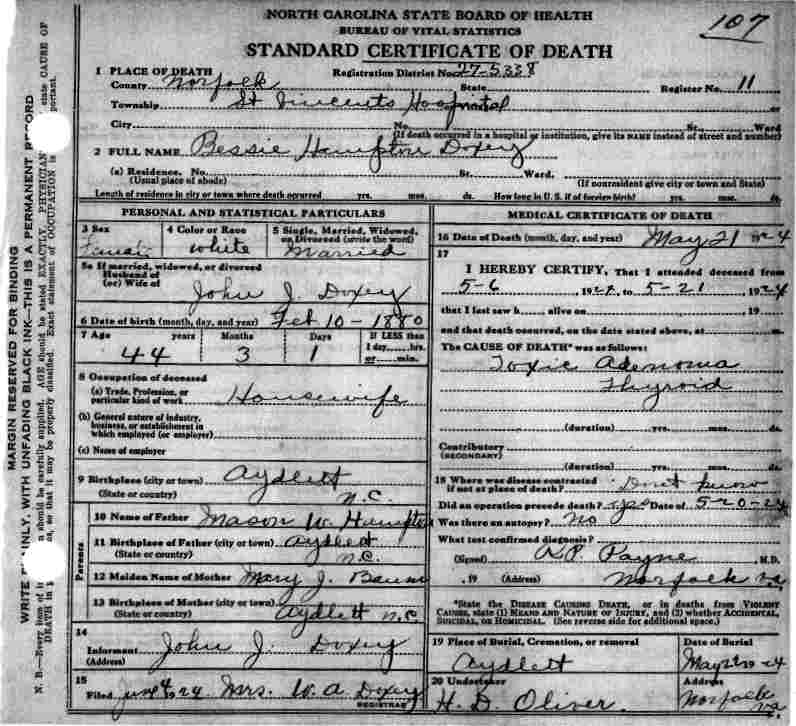 107
NORTH CAROLINA STATE BOARD OF HEALTH
BUREAU OF VITAL STATISTICS
STANDARD CERTIFICATE OF DEATH
1 PLACE OF DEATH Registration District No. 27-5338 Register No. 11
County Norfolk State
Township St Vincents Hospital or
City No. St. Ward
(If death occurred in a hospital or institution, give its NAME instead of street and number)
2 FULL NAME Bessie Hampton Doxey
(a) Residence. No. St. Ward.
(Usual place of abode) (If nonresident give city or town and State)
Length of residence in city or town where death occurred yrs. mos. ds. How long in U.S. if of foreign birth? yrs. mos. ds.
PERSONAL AND STATISTICAL PARTICULARS
3 Sex 4 Color or Race 5 Single, Married, Widowed, or Divorced (write the word)
white Married
5a If married, widowed, or divorced
Husband of
(or) Wife of John J. Doxey
6 Date of birth (month, day, and year) Feb 10-1880
7 Age years Months Days If LESS than
1 day, hrs.
or min.
44 3 1
8 Occupation of deceased
(a) Trade, Profession, or
particular kind of work Housewife
(b) General nature of industry,
business, or establishment in
which employed (or employer)
(c) Name of employer
9 Birthplace (city or town) Aydlett
(State or country) N.C.
Parents
10 Name of Father Mason W. Hampton
11 Birthplace of Father (city or town) Aydlett
(State or country) N.C.
12 Maiden Name of Mother Mary J.
13 Birthplace of Mother (city or town)
(State or country) Aydlett N C
14
Informant John J. Doxey
(Address)
15
Filed June 4 1924 Mrs. W. A Doxey
REGISTRAR
MEDICAL CERTIFICATE OF DEATH
16 Date of Death (month, day, and year) May 21 1924
17
I HEREBY CERTIFY, That I attended deceased from
5-6 1924, to 5-21, 1924
that I last saw h alive on 19
and that death occurred, on the date stated above, at m.
The CAUSE OF DEATH* was as follows:
Toxic Adenoma
Thyroid
(duration) yrs. mos. ds.
Contributory
(SECONDARY)
(duration) yrs. mos. ds.
18 Where was disease contracted
if not at place of death? Dont know
Did an operation precede death? yes Date of 5-20-24
Was there an autopsy? No
What test confirmed diagnosis?
(Signed) R.P. Payne M.D.
, 19 (Address) Norfolk Va
*State the DISEASE CAUSING DEATH, or in deaths from VIOLENT
CAUSES, state (1) MEANS AND NATURE OF INJURY, and (2) whether ACCIDENTAL,
SUICIDAL, or HOMICIDAL. (See reverse side for additional space.)
19 Place of Burial, Cremation, or removal Date of Burial
Aydlett 1924
20 Undertaker Address
H. D. Oliver. Norfolk Va.
MARGIN RESERVED FOR BINDING
WITH UNFADING BLACK INK—THIS IS A PERMANENT